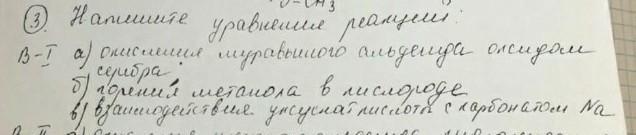 O-CH3
③. Напишите уравнения реакций:
В-I а) окисления муравьиного альдегида оксидом
серебра
б) горения метанола в кислороде
в) взаимодействия уксусной кислоты с карбонатом Na